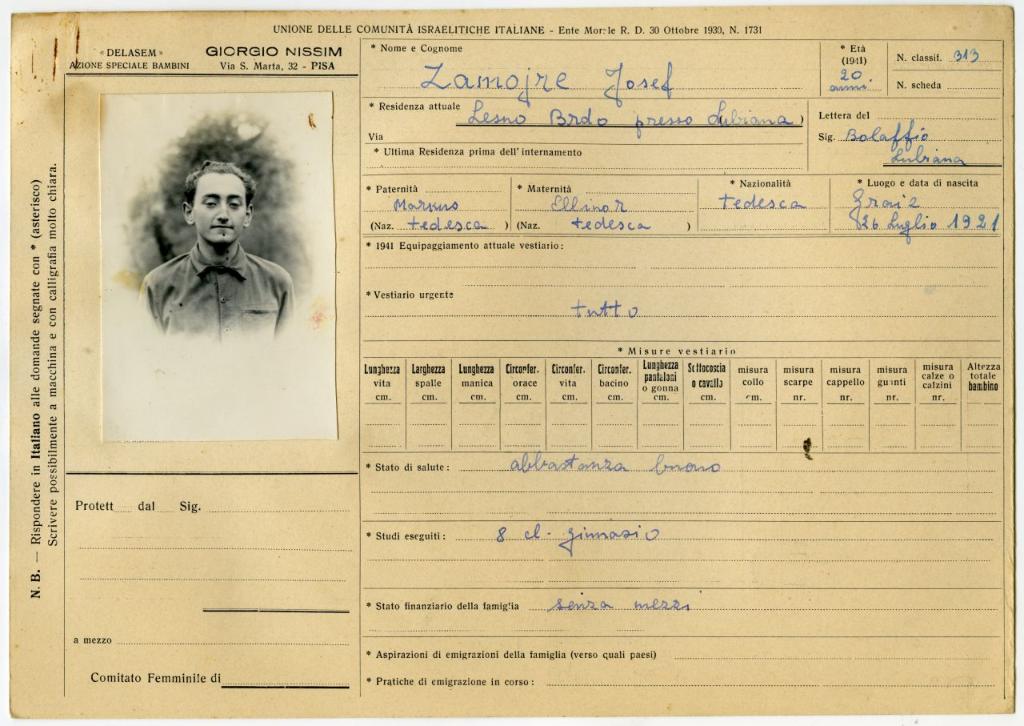 UNIONE DELLE COMUNITÀ ISRAELITICHE ITALIANE - Ente Morale R. D. 30 Ottobre 1930, N. 1731
« DELASEM »
AZIONE SPECIALE BAMBINI
GIORGIO NISSIM
Via S. Marta, 32 - PISA
* Nome e Cognome
Zamojre Josef
* Età
(1941)
20
anni
N. classif. 313
N. scheda
* Residenza attuale Lesno Brdo presso Lubiana)
Via
* Ultima Residenza prima dell'internamento
Lettera del
Sig. Bolaffio
Lubiana
* Paternità
Markus
(Naz. tedesca )
* Maternità
Ellinor
(Naz. tedesca )
* Nazionalità
tedesca
* Luogo e data di nascita
Graiz
26 Luglio 1921
* 1941 Equipaggiamento attuale vestiario:
* Vestiario urgente
tutto
* Misure vestiario
Lunghezza vita cm.
Larghezza spalle cm.
Lunghezza manica cm.
Circonfer. orace cm.
Circonfer. vita cm.
Circonfer. bacino cm.
Lunghezza pantaloni o gonna cm.
Sottocoscia o cavallo cm.
misura collo cm.
misura scarpe nr.
misura cappello nr.
misura guanti nr.
misura calze o calzini nr.
Altezza totale bambino
* Stato di salute: abbastanza buono
* Studi eseguiti: 8 cl. ginnasio
* Stato finanziario della famiglia senza mezzi
* Aspirazioni di emigrazioni della famiglia (verso quali paesi)
* Pratiche di emigrazione in corso:
Protett dal Sig.
a mezzo
Comitato Femminile di
N. B. — Rispondere in Italiano alle domande segnate con * (asterisco)
Scrivere possibilmente a macchina e con calligrafia molto chiara.